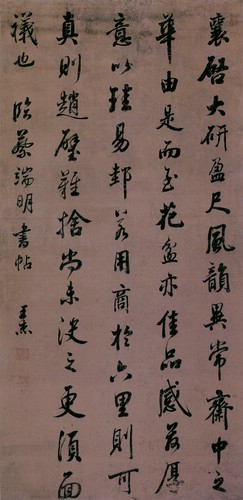 襄啓大研盈尺風韻異常齋中之
華由是而至花盆亦佳品感荷厚
意以珪易邽若用商於六里則可
真則趙璧難捨尚未決之更須面
議也 臨蔡端明書帖